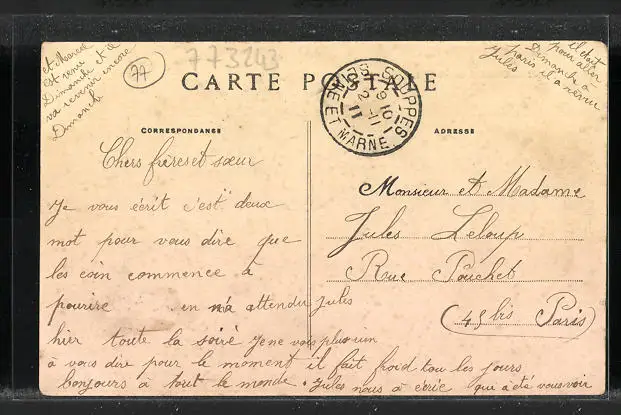 et Marcel
est venu
Dimanche et il
va revenir encore
Dimanche
77
773243
il était
pour aller
Dimanche à
paris il a
Jules
CARTE POSTALE
SOUPPES
SEINE ET MARNE
9 10
2 -11
11
CORRESPONDANCE
ADRESSE
Chers frères et sœur
Je vous écrit c'est deux
mot pour vous dire que
les coin commence à
pourire en n'a attendu Jules
hier toute la soiré je ne vois plus un
à vous dire pour le moment il fait froid tou les jours
bonjours à tout le monde. Jules nous a écrie qui a été vous voir
Monsieur et Madame
Jules Leloup
Rue Pouchet
(45 bis Paris)